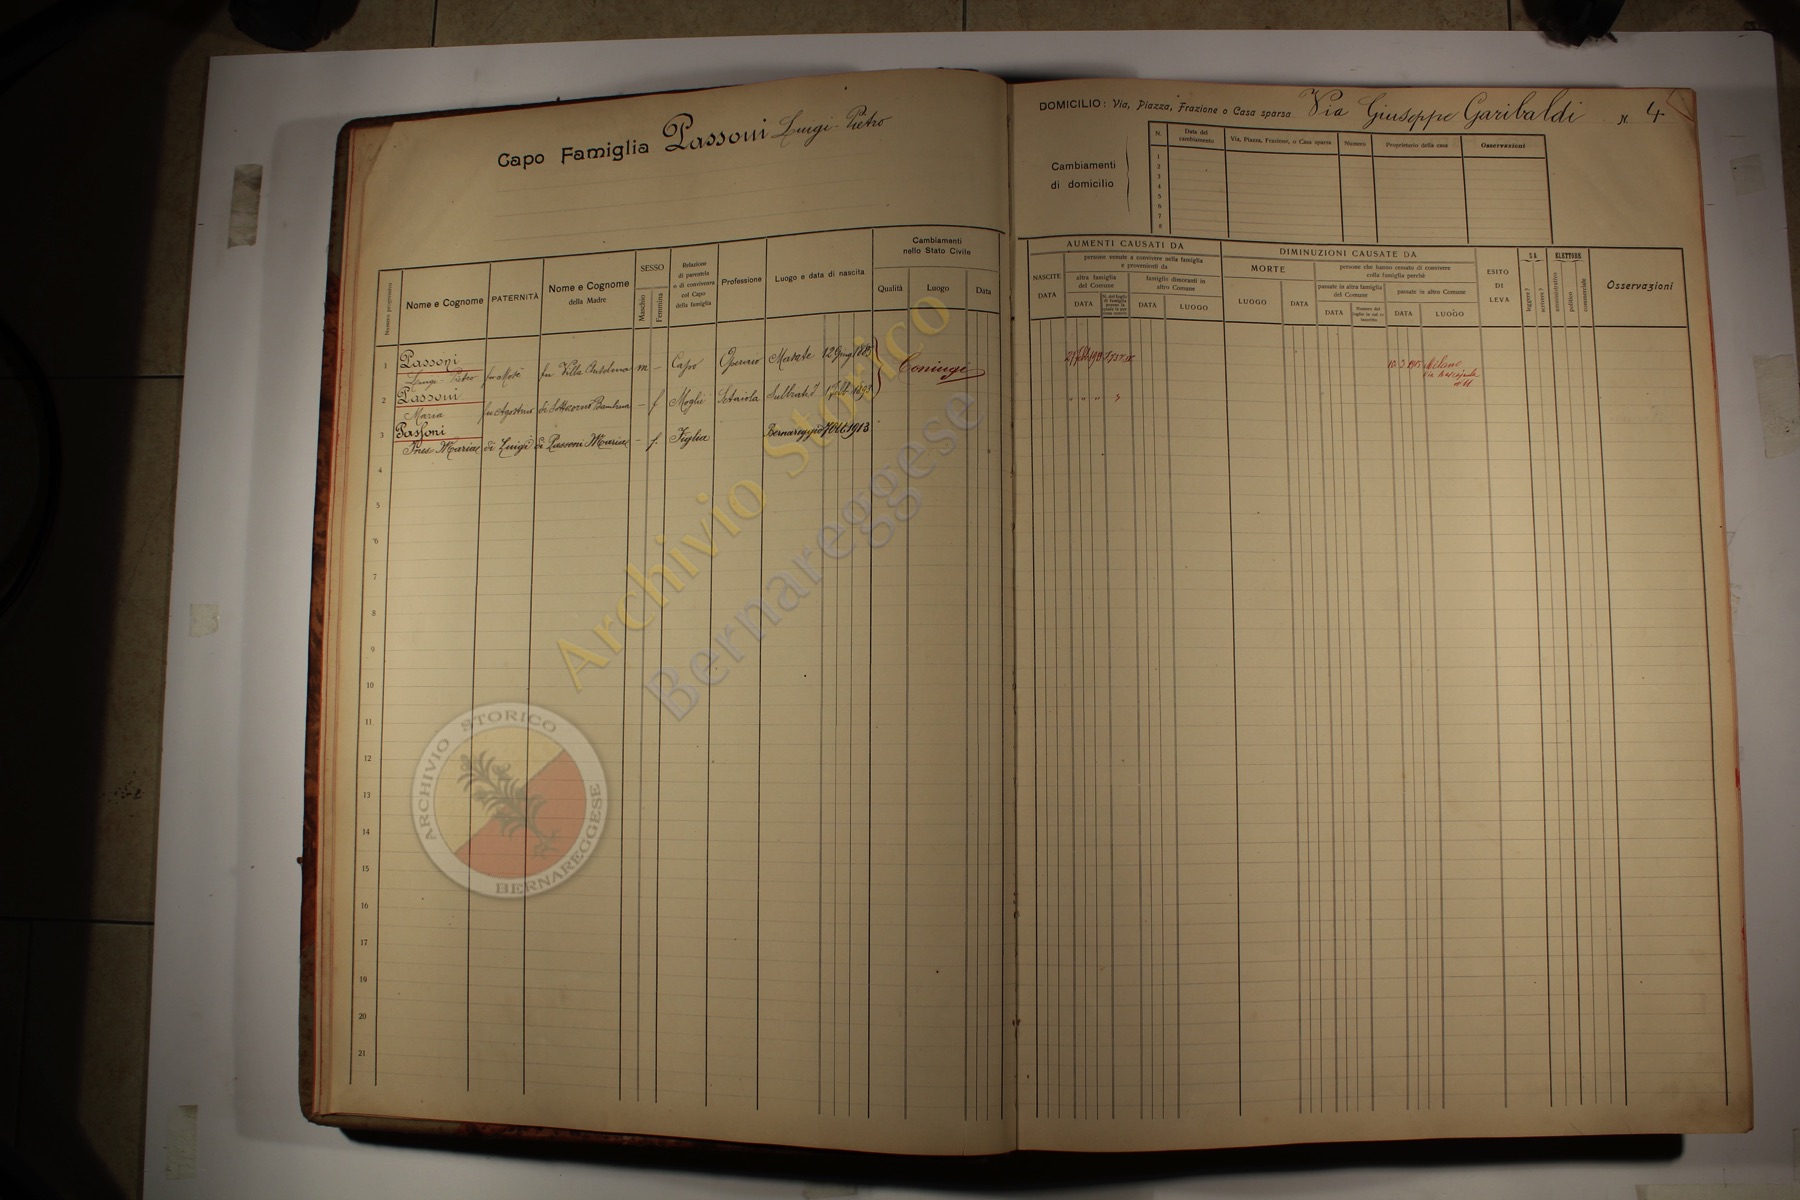 Capo Famiglia Passoni Luigi-Pietro
DOMICILIO: Via, Piazza, Frazione o Casa sparsa Via Giuseppe Garibaldi N. 4
Cambiamenti
di domicilio
N.
Data del
cambiamento
Via, Piazza, Frazione, o Casa sparsa
Numero
Proprietario della casa
Osservazioni
1
2
3
4
5
6
7
8
Numero progressivo
Nome e Cognome
PATERNITÀ
Nome e Cognome
della Madre
SESSO
Maschio
Femmina
Relazione
di parentela
o di convivenza
col Capo
della famiglia
Professione
Luogo e data di nascita
Cambiamenti
nello Stato Civile
Qualità
Luogo
Data
NASCITE
DATA
AUMENTI CAUSATI DA
persone venute a convivere nella famiglia
e provenienti da
altra famiglia
del Comune
DATA
famiglie dimoranti in
altro Comune
DATA
LUOGO
DIMINUZIONI CAUSATE DA
MORTE
LUOGO
DATA
persone che hanno cessato di convivere
colla famiglia perchè
passate in altra famiglia
del Comune
DATA
passate in altro Comune
DATA
LUOGO
ESITO
DI
LEVA
SA
leggere?
scrivere?
ELETTORE
amministrativo
politico
commerciale
Osservazioni
1 Passoni
Luigi-Pietro fu Mosè fu Villa m - Capo Operaio Masate 12 1885
Coniugi
Milano
2 Passoni
Maria fu Agostino di - f Moglie Setaiola 1893
3 Passoni
Ines-Maria di Luigi di Passoni Maria - f. Figlia Bernareggio 1913
4
5
6
7
8
9
10
11
12
13
14
15
16
17
18
19
20
21
Archivio Storico
Bernareggese
ARCHIVIO STORICO
BERNAREGGESE